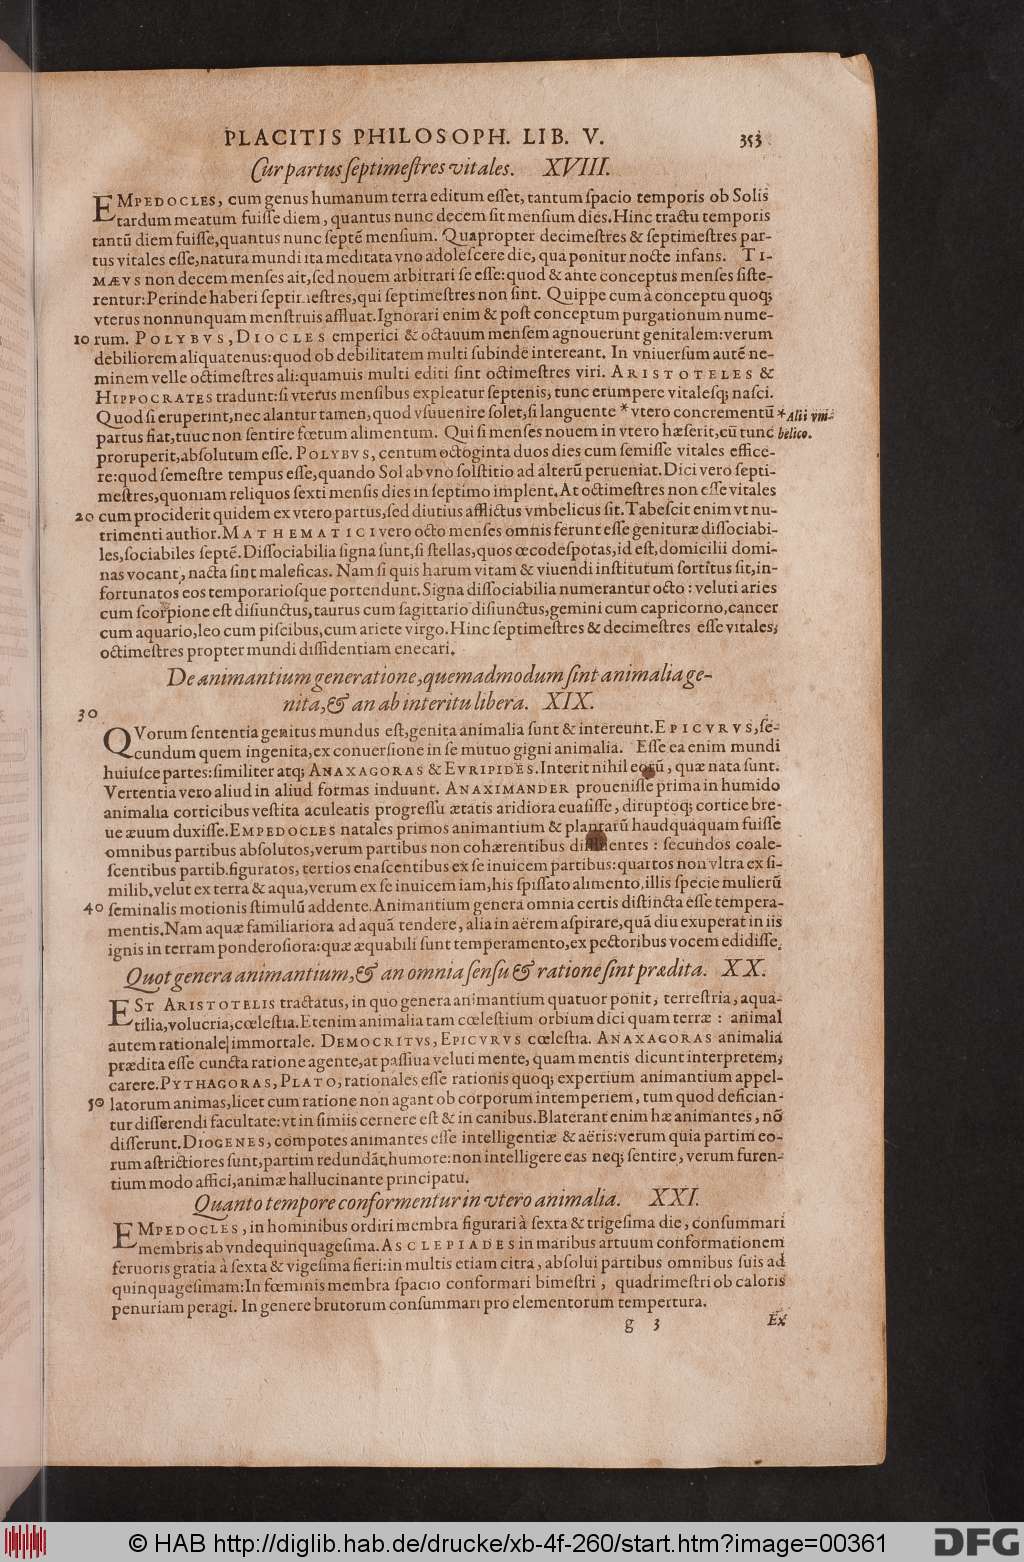 PLACITIS PHILOSOPH. LIB. V. 353
Cur partus ſeptimeſtres vitales. XVIII.
EMPEDOCLES, cum genus humanum terra editum eſſet, tantum ſpacio temporis ob Solis
tardum meatum fuiſſe diem, quantus nunc decem ſit menſium dies. Hinc tractu temporis
tantũ diem fuiſſe, quantus nunc ſeptẽ menſium. Quapropter decimeſtres & ſeptimeſtres par-
tus vitales eſſe, natura mundi ita meditata vno adoleſcere die, qua ponitur nocte infans. TI-
MÆVS non decem menſes ait, ſed nouem arbitrari ſe eſſe: quod & ante conceptus menſes ſiſte-
rentur: Perinde haberi ſeptimeſtres, qui ſeptimeſtres non ſint. Quippe cum à conceptu quoq;
vterus nonnunquam menſtruis affluat. Ignorari enim & poſt conceptum purgationum nume-
10 rum. POLYBVS, DIOCLES emperici & octauum menſem agnouerunt genitalem: verum
debiliorem aliquatenus: quod ob debilitatem multi ſubinde intereant. In vniuerſum autẽ ne-
minem velle octimeſtres ali: quamuis multi editi ſint octimeſtres viri. ARISTOTELES &
HIPPOCRATES tradunt: ſi vterus menſibus expleatur ſeptenis, tunc erumpere vitalesq; naſci.
Quod ſi eruperint, nec alantur tamen, quod vſuuenire ſolet, ſi languente * vtero concrementũ * Alii vm-
partus fiat, tuuc non ſentire fœtum alimentum. Qui ſi menſes nouem in vtero hæſerit, cũ tunc belico.
proruperit, abſolutum eſſe. POLYBVS, centum octoginta duos dies cum ſemiſſe vitales effice-
re: quod ſemeſtre tempus eſſe, quando Sol ab vno ſolſtitio ad alterũ perueniat. Dici vero ſepti-
meſtres, quoniam reliquos ſexti menſis dies in ſeptimo implent. At octimeſtres non eſſe vitales
20 cum prociderit quidem ex vtero partus, ſed diutius afflictus vmbelicus ſit. Tabeſcit enim vt nu-
trimenti author. MATHEMATICI vero octo menſes omnis ferunt eſſe genituræ diſſociabi-
les, ſociabiles ſeptẽ. Diſſociabilia ſigna ſunt, ſi ſtellas, quos œcodeſpotas, id eſt, domicilii domi-
nas vocant, nacta ſint maleficas. Nam ſi quis harum vitam & viuendi inſtitutum ſortitus ſit, in-
fortunatos eos temporariosque portendunt. Signa diſſociabilia numerantur octo: veluti aries
cum ſcorpione eſt diſiunctus, taurus cum ſagittario diſiunctus, gemini cum capricorno, cancer
cum aquario, leo cum piſcibus, cum ariete virgo. Hinc ſeptimeſtres & decimeſtres eſſe vitales;
octimeſtres propter mundi diſſidentiam enecari.
De animantium generatione, quemadmodum ſint animalia ge-
nita, & an ab interitu libera. XIX.
30
QVorum ſententia genitus mundus eſt, genita animalia ſunt & intereunt. EPICVRVS, ſe-
cundum quem ingenita, ex conuerſione in ſe mutuo gigni animalia. Eſſe ea enim mundi
huiuſce partes: ſimiliter atq; ANAXAGORAS & EVRIPIDES. Interit nihil eorũ, quæ nata ſunt.
Vertentia vero aliud in aliud formas induunt. ANAXIMANDER proueniſſe prima in humido
animalia corticibus veſtita aculeatis progreſſu ætatis aridiora euaſiſſe, diruptoq; cortice bre-
ue æuum duxiſſe. EMPEDOCLES natales primos animantium & plantarũ haudquaquam fuiſſe
omnibus partibus abſolutos, verum partibus non cohærentibus diffluentes: ſecundos coale-
ſcentibus partib. figuratos, tertios enaſcentibus ex ſe inuicem partibus: quartos non vltra ex ſi-
milib. velut ex terra & aqua, verum ex ſe inuicem iam, his ſpiſſato alimento, illis ſpecie mulierũ
40 ſeminalis motionis ſtimulũ addente. Animantium genera omnia certis diſtincta eſſe tempera-
mentis. Nam aquæ familiariora ad aquã tendere, alia in aërem aſpirare, quã diu exuperat in iis
ignis in terram ponderoſiora: quæ æquabili ſunt temperamento, ex pectoribus vocem edidiſſe.
Quot genera animantium, & an omnia ſenſu & ratione ſint prædita. XX.
EST ARISTOTELIS tractatus, in quo genera animantium quatuor ponit, terreſtria, aqua-
tilia, volucria, cœleſtia. Etenim animalia tam cœleſtium orbium dici quam terræ: animal
autem rationale immortale. DEMOCRITVS, EPICVRVS cœleſtia. ANAXAGORAS animalia
prædita eſſe cuncta ratione agente, at paſſiua veluti mente, quam mentis dicunt interpretem,
carere. PYTHAGORAS, PLATO, rationales eſſe rationis quoq; expertium animantium appel-
50 latorum animas, licet cum ratione non agant ob corporum intemperiem, tum quod deſician-
tur diſſerendi facultate: vt in ſimiis cernere eſt & in canibus. Blaterant enim hæ animantes, nõ
diſſerunt. DIOGENES, compotes animantes eſſe intelligentiæ & aëris: verum quia partim eo-
rum aſtrictiores ſunt, partim redundãt humore: non intelligere eas neq; ſentire, verum furen-
tium modo affici, animæ hallucinante principatu.
Quanto tempore conformentur in vtero animalia. XXI.
EMPEDOCLES, in hominibus ordiri membra figurari à ſexta & trigeſima die, conſummari
membris ab vndequinquageſima. ASCLEPIADES in maribus artuum conformationem
feruoris gratia à ſexta & vigeſima fieri: in multis etiam citra, abſolui partibus omnibus ſuis ad
quinquageſimam: In fœminis membra ſpacio conformari bimeſtri, quadrimeſtri ob caloris
penuriam peragi. In genere brutorum conſummari pro elementorum tempertura.
g 3 Ex
© HAB http://diglib.hab.de/drucke/xb-4f-260/start.htm?image=00361 DFG